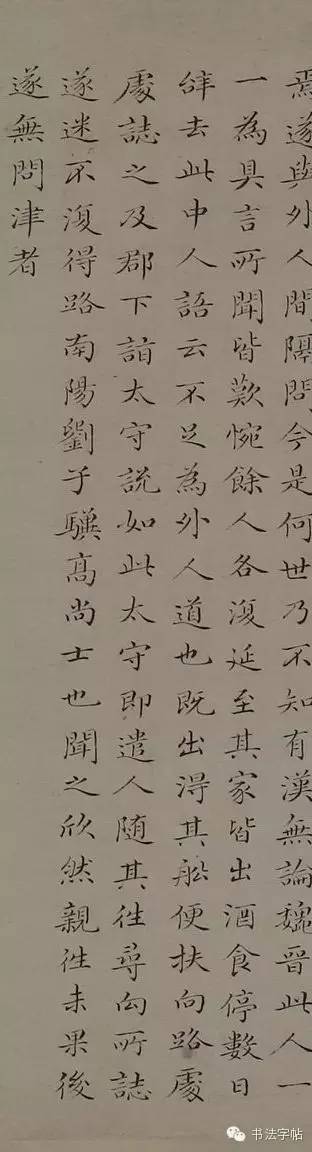 焉遂與外人間隔問今是何世乃不知有漢無論魏晉此人一
一為具言所聞皆歎惋餘人各復延至其家皆出酒食停數日
辭去此中人語云不足為外人道也既出得其船便扶向路處
處誌之及郡下詣太守說如此太守即遣人随其往尋向所誌
遂迷不復得路南陽劉子驥高尚士也聞之欣然親往未果後
遂無問津者
书法字帖